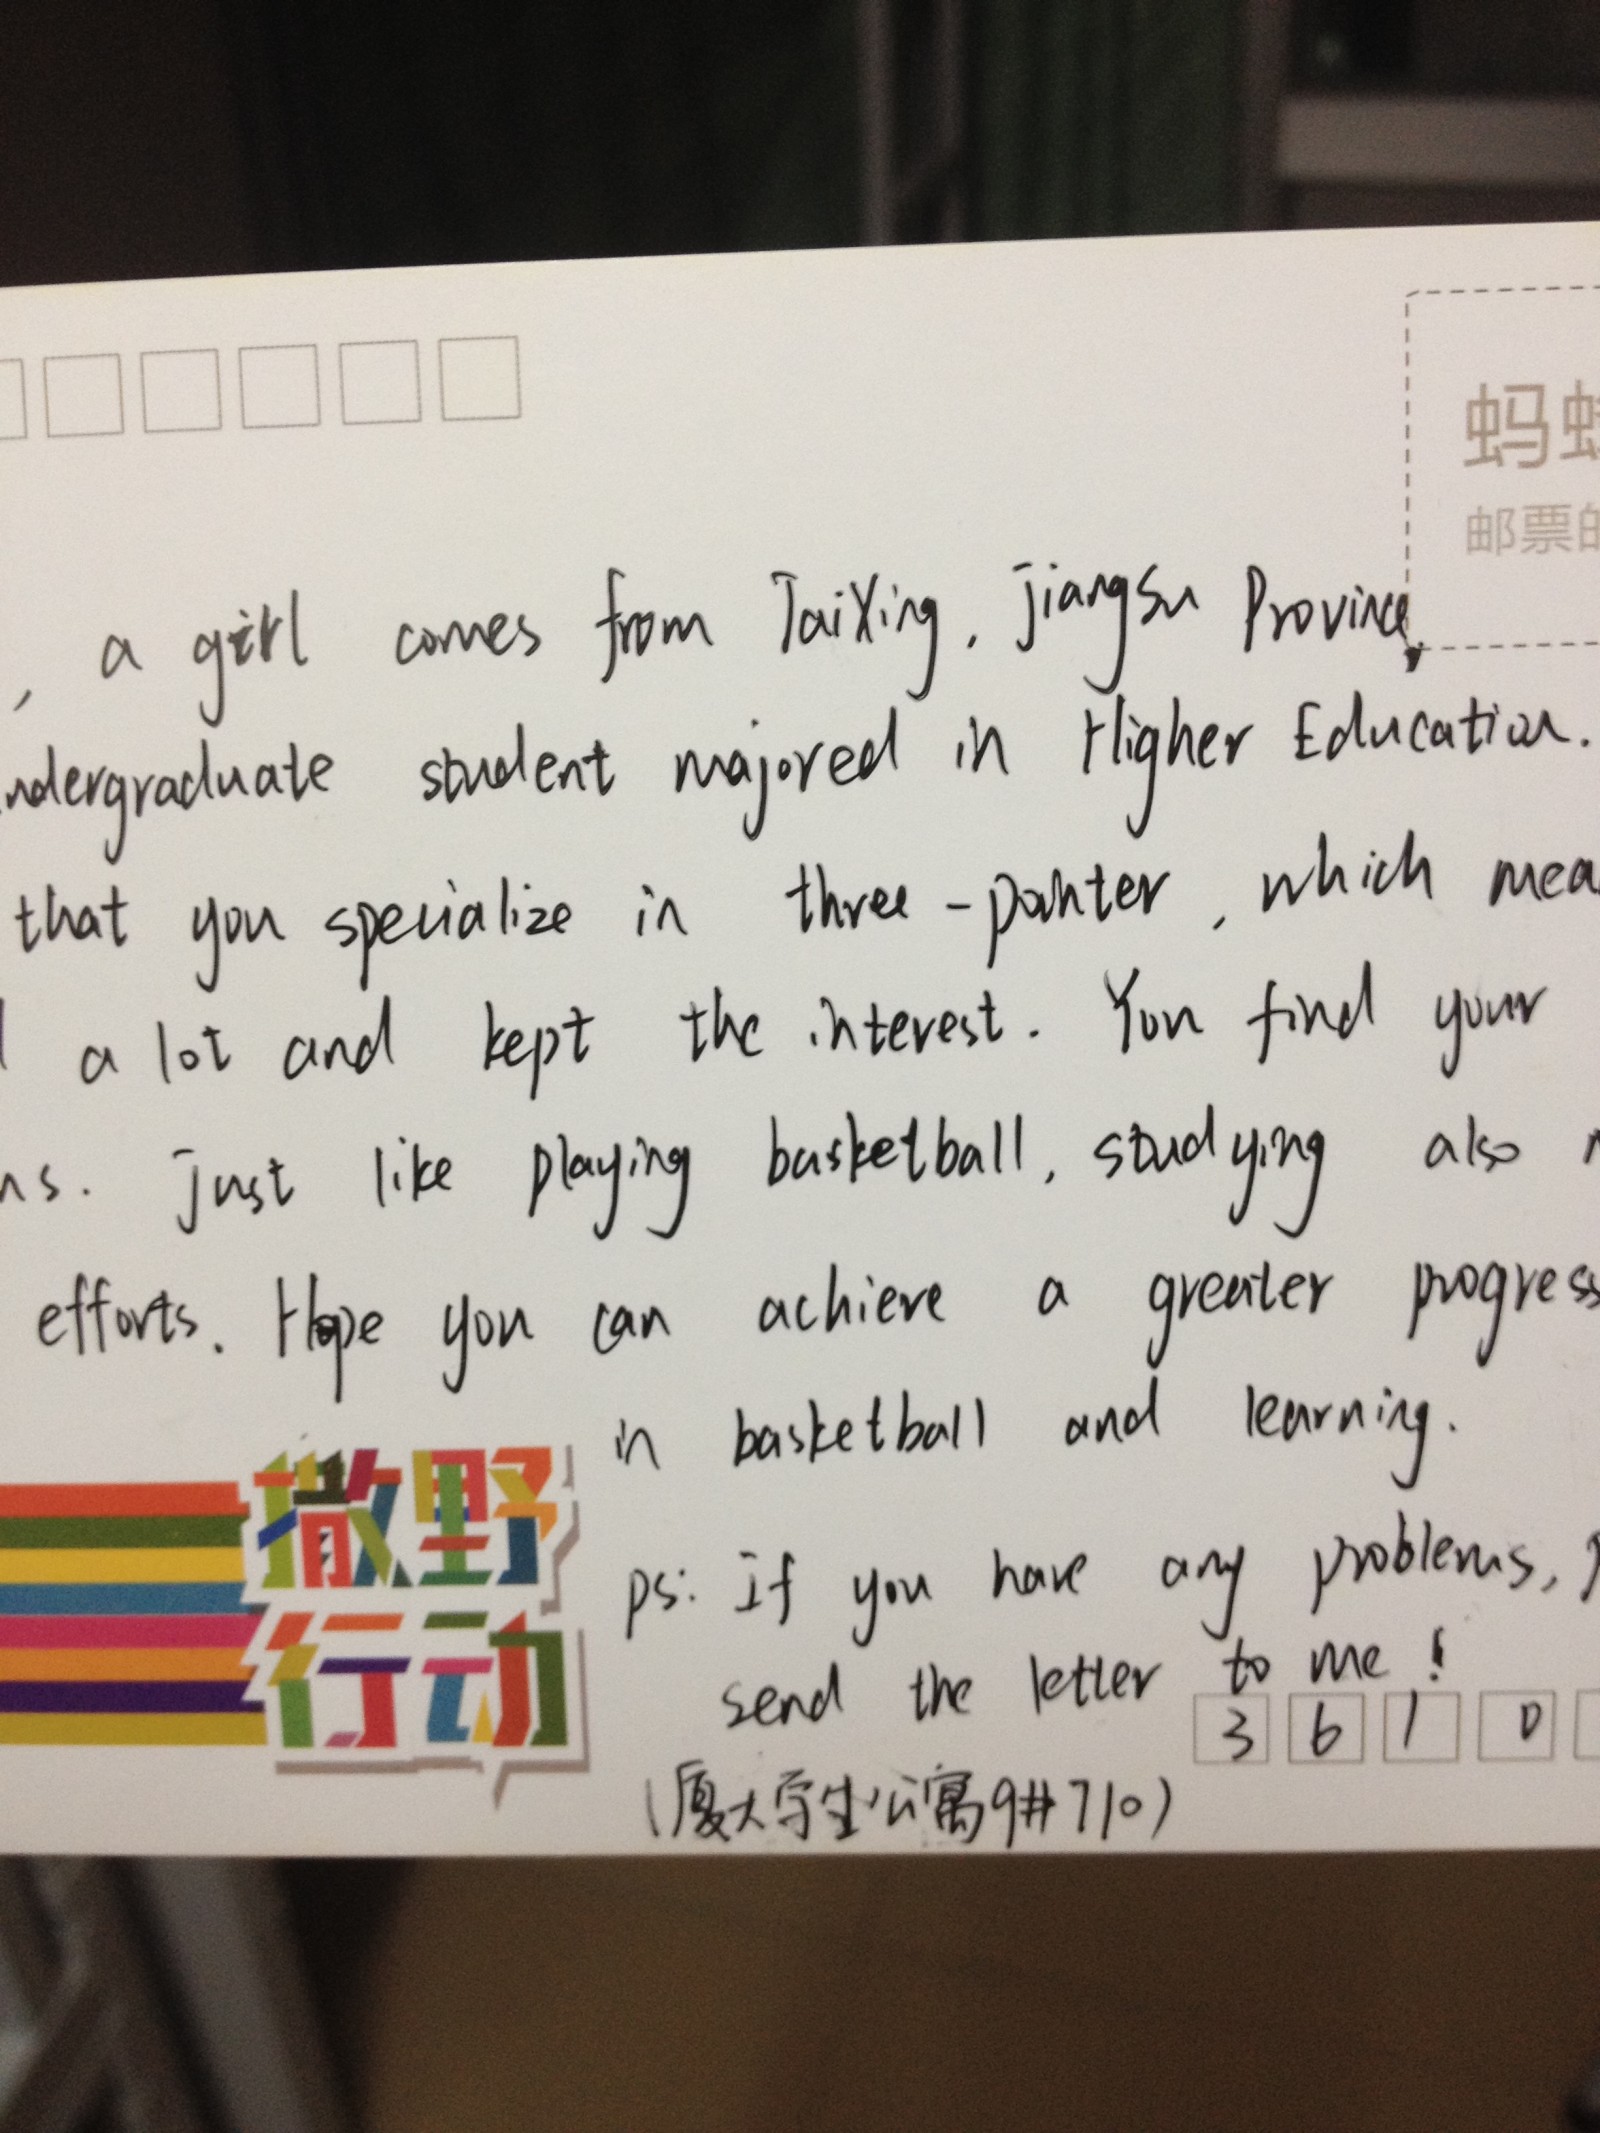 蚂
邮票的
, a girl comes from TaiXing, jiangsu Province,
undergraduate student majored in Higher Education.
that you specialize in three-pointer, which mea
a lot and kept the interest. You find your
ns. just like playing basketball, studying also
efforts. Hope you can achieve a greater progress
in basketball and learning.
撒野
行动
ps: if you have any problems,
send the letter to me!
3 6 1 0
(厦大学生公寓9#710)